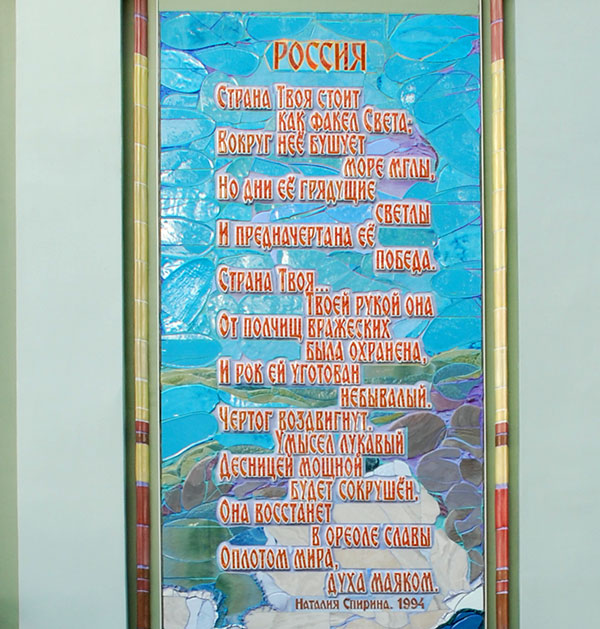 РОССИЯ
Страна Твоя стоит
как факел Света;
Вокруг неё бушует
море мглы,
Но дни её грядущие
светлы
И предначертана её
победа.
Страна Твоя...
Твоей рукой она
От полчищ вражеских
была охранена,
И рок ей уготован
небывалый.
Чертог воздвигнут.
Умысел лукавый
Десницей мощной
будет сокрушён.
Она восстанет
в ореоле славы
Оплотом мира,
духа маяком.
Наталия Спирина. 1994